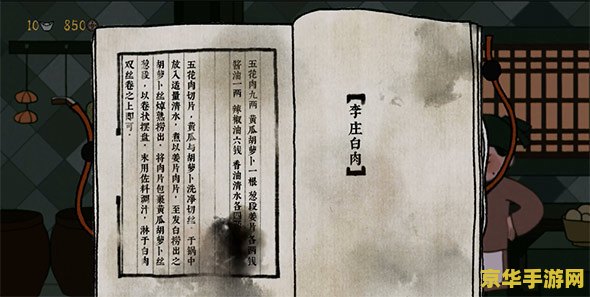 10 850
【李庄白肉】
五花肉九两 黄瓜胡萝卜一根 葱段姜片各两钱
酱油一两 辣椒油六钱 香油清水各
五花肉切片，黄瓜与胡萝卜洗净切丝。于锅中
放入适量清水，煮以姜片肉片，至发白捞出之
胡萝卜丝焯熟捞出，将肉片包裹黄瓜胡萝卜丝
葱段，以卷状摆盘，末用佐料调汁，淋于白肉
双丝卷之上即可。
京华手游网